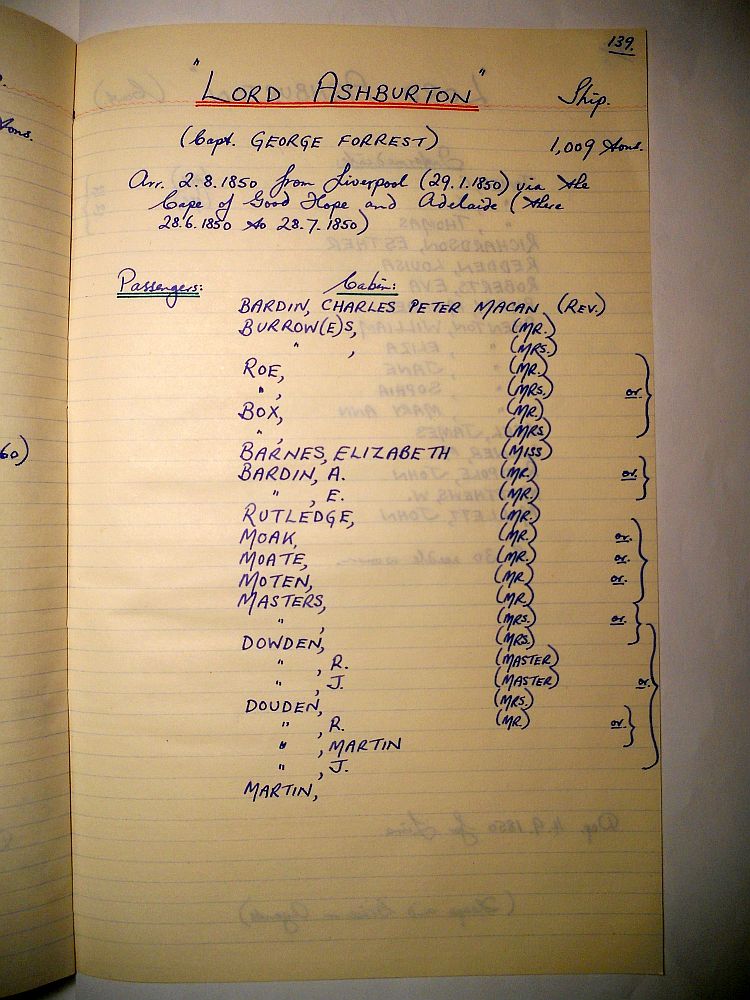 139.
"LORD ASHBURTON" Ship.
(Capt. GEORGE FORREST) 1,009 tons.
Arr. 2.8.1850 from Liverpool (29.1.1850) via the
Cape of Good Hope and Adelaide (there
28.6.1850 to 28.7.1850)
Passengers: Cabin:
BARDIN, CHARLES PETER MACAN (REV.)
BURROW(E)S, (MR.)
" , (MRS.)
ROE, (MR.)
" , (MRS.) or
BOX, (MR.)
" , (MRS)
BARNES, ELIZABETH (MISS)
BARDIN, A. (MR.) or
" , E. (MR.)
RUTLEDGE, (MR.)
MOAK, (MR.) or
MOATE, (MR.) or
MOTEN, (MR.) or
MASTERS, (MR.)
" , (MRS.) or
DOWDEN, (MRS.)
" , R. (MASTER)
" , J. (MASTER) or
DOUDEN, (MRS.)
" , R. (MR.) or
" , MARTIN
" , J.
MARTIN,
tons.
60)